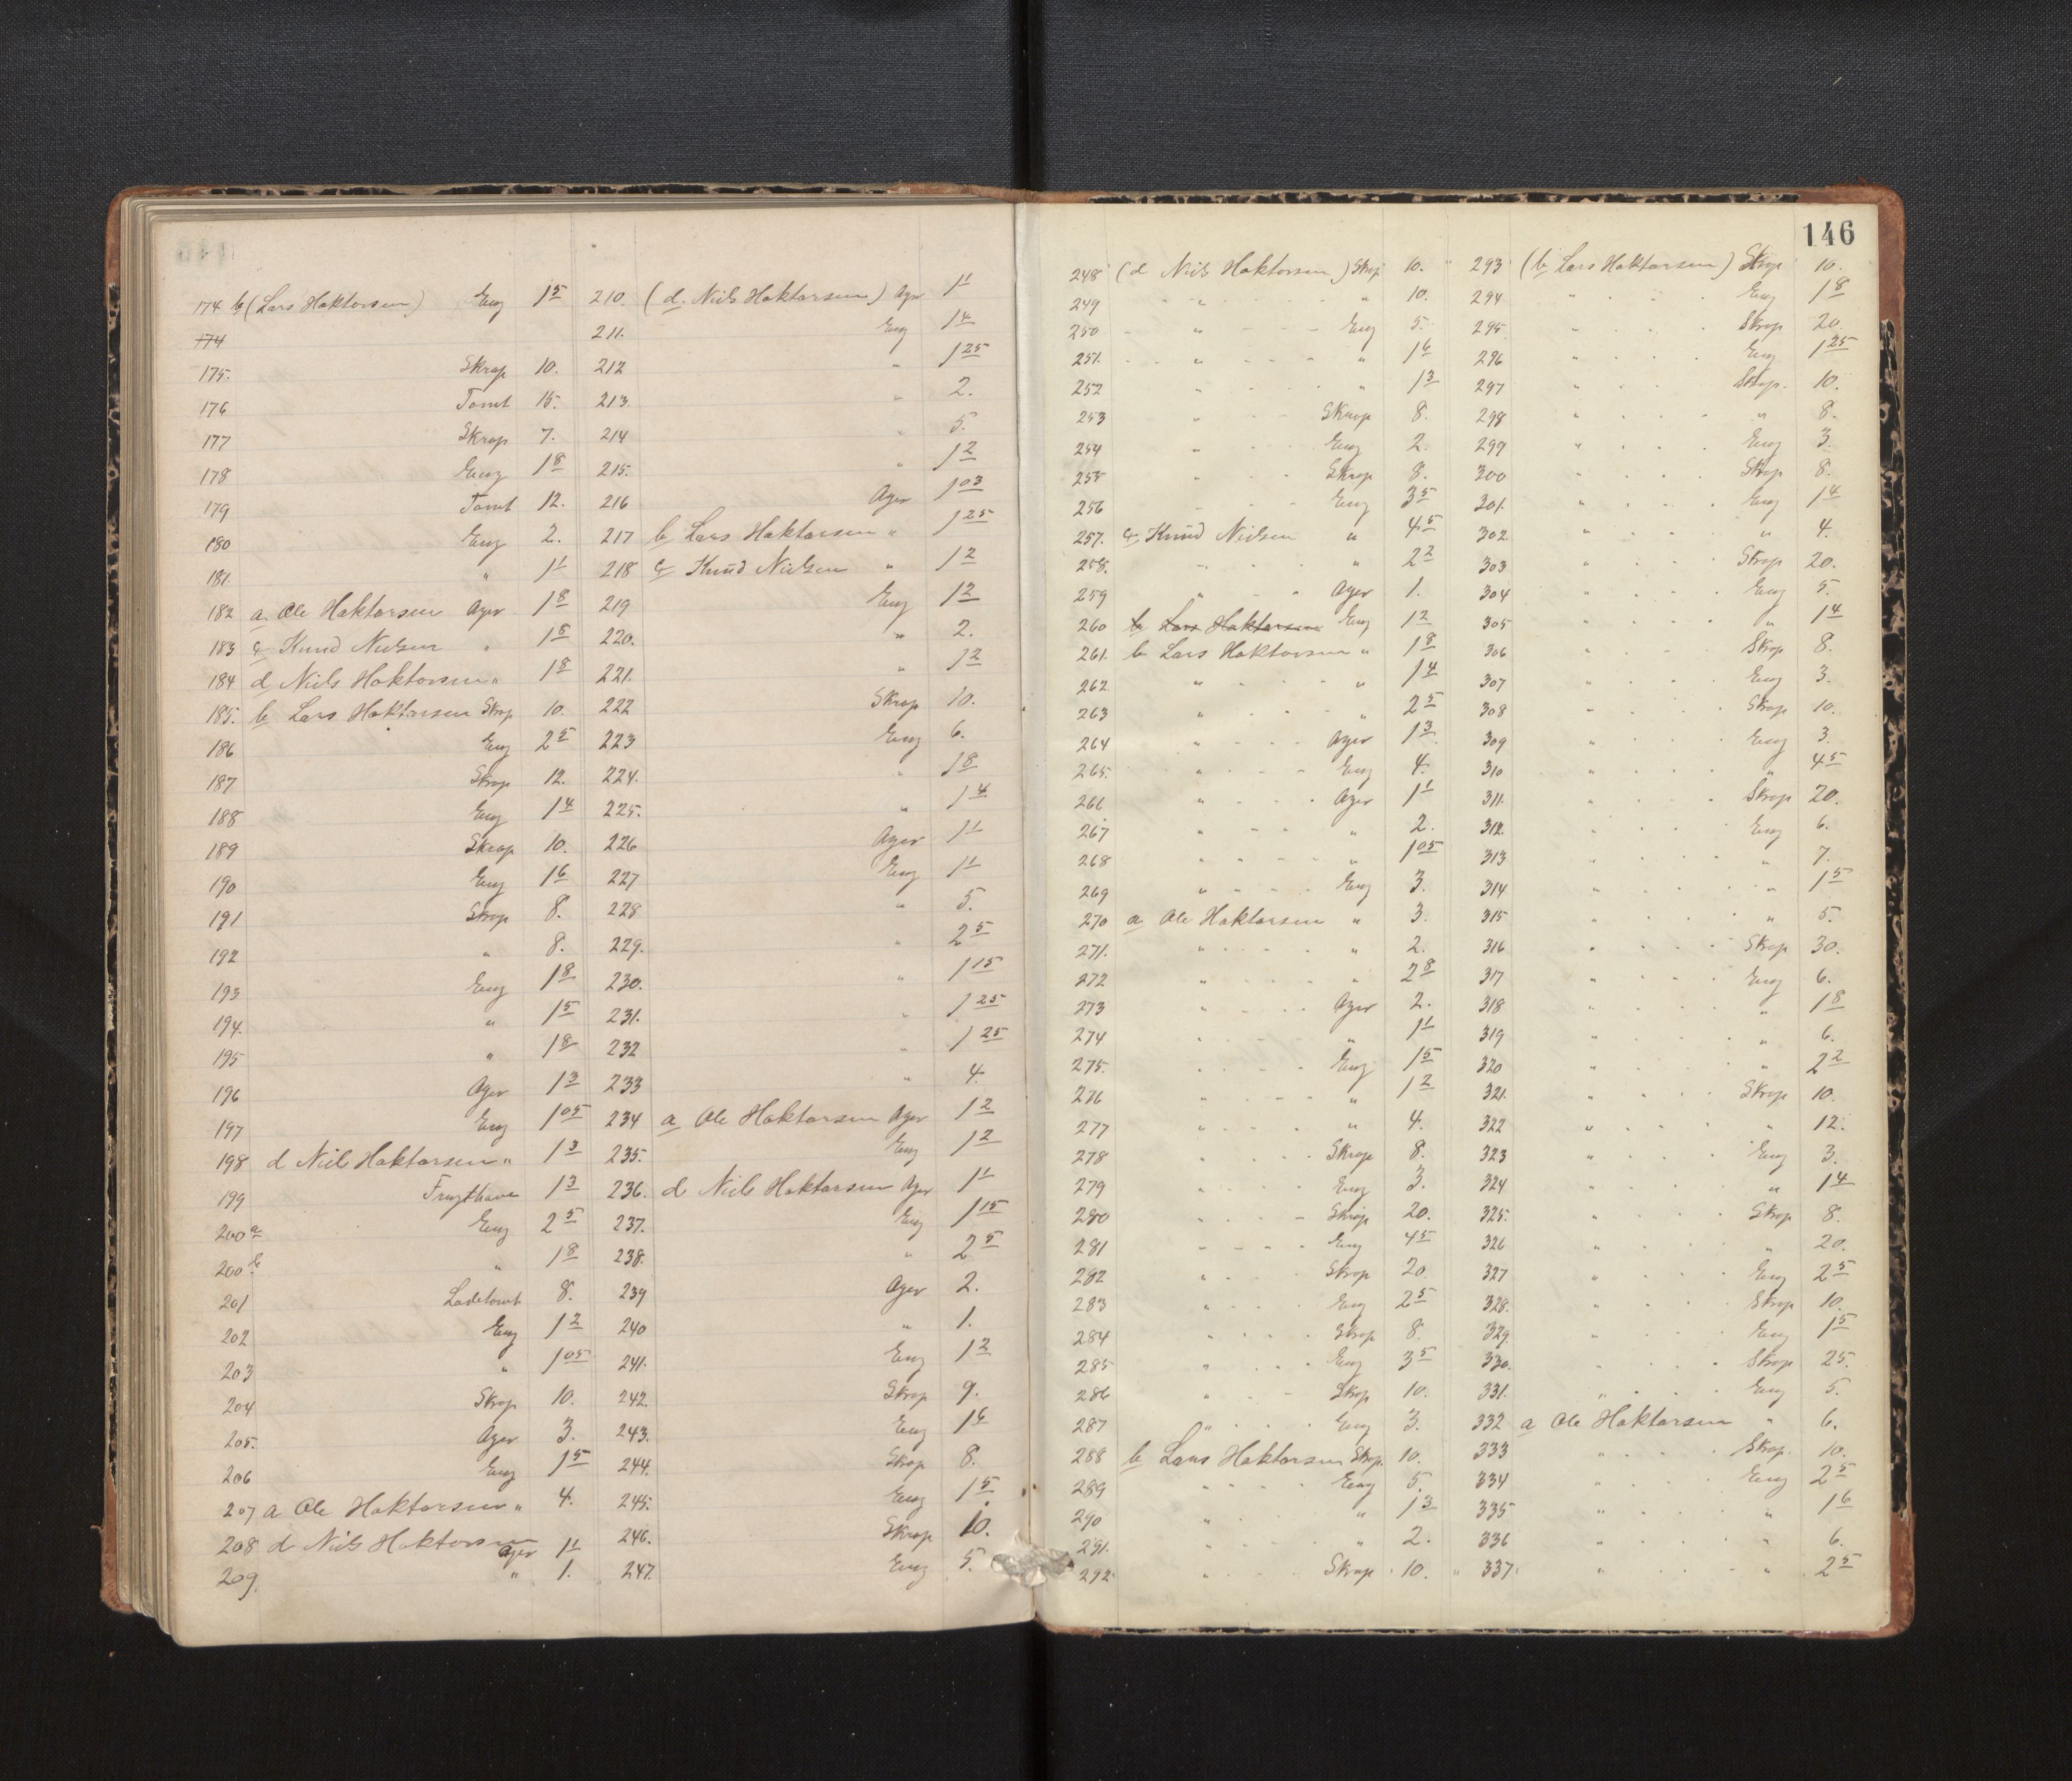 146
174 b (Lars Haktorsen) Eng 1 5
174
175. Skrap 10.
176 Tomt 15.
177 Skrap 7.
178 Eng 1 8
179 Tomt 12.
180 Eng 2.
181. " 1 1
182 a. Ole Haktorsen Ager 1 8
183 c Knud Nielsen " 1 8
184 d Niels Haktorsen " 1 8
185. b Lars Haktorsen Skrap 10.
186 Eng 2 5
187 Skrap 12.
188 Eng 1 4
189 Skrap 10.
190 Eng 1 6
191 Skrap 8.
192 " 8.
193 Eng 1 8
194. " 1 5
195 " 1 8
196 Ager 1 3
197 Eng 1 05
198 d Niels Haktorsen " 1 3
199 Frugthave 1 3
200 a Eng 2 5
200 b " 1 8
201 Ladetomt 8.
202 Eng 1 2
203 " 1 05
204 Skrap 10.
205. Ager 3.
206 Eng 1 5
207 a Ole Haktorsen " 4.
208 d Niels Haktorsen Ager 1 1
209. " 1.
210. (d. Niels Haktorsen) Ager 1 1
211. Eng 1 4
212 " 1 25
213. " 2.
214 " 5.
215. " 1 2
216 Ager 1 03
217 b Lars Haktorsen " 1 25
218 c Knud Nielsen " 1 2
219 Eng 1 2
220. " 2.
221. " 1 2
222 Skrap 10.
223 Eng 6.
224. " 1 8
225. " 1 4
226 Ager 1 1
227 Eng 1 1
228 " 5.
229. " 2 5
230. " 1 15
231. " 1 25
232 " 1 25
233 " 4.
234 a Ole Haktorsen Ager 1 2
235. Eng 1 2
236. d Niels Haktorsen Ager 1 1
237. Eng 1 15
238. " 2 5
239 Ager 2.
240 " 1.
241. Eng 1 2
242. Skrap 9.
243. Eng 1 6
244. Skrap 8.
245. Eng 1 5
246. Skrap 10.
247. Eng 5.
248 (d Niels Haktorsen) Skrap 10.
249 " " 10.
250 " Eng 5.
251. " " 1 6
252 " " 1 3
253 " Skrap 8.
254 " Eng 2.
255 " Skrap 8.
256 Eng 3 5
257. c Knud Nielsen " 4 5
258. " " 2 2
259 " Ager 1.
260 b Lars Haktorsen Eng 1 2
261. b Lars Haktorsen " 1 8
262. " " 1 4
263 " " 2 5
264 " Ager 1 3
265. " Eng 4.
266 " Ager 1 1
267 " " 2.
268 " " 1 05
269 " Eng 3.
270 a Ole Haktorsen " 3.
271. " " 2.
272 " " 2 8
273 " Ager 2.
274 " " 1 1
275. " Eng 1 5
276 " " 1 2
277 " " 4.
278 " Skrap 8.
279 " Eng 3.
280 " Skrap 20.
281 " Eng 4 5
282 " Skrap 20.
283 " Eng 2 5
284 " Skrap 8.
285 " Eng 3 5
286 " Skrap 10.
287 " Eng 3.
288 b Lars Haktorsen Skrap 10.
289 " Eng 5.
290 " " 1 3
291. " " 2.
292. " Skrap 10.
293 (b Lars Haktorsen) Skrap 10.
294 " Eng 1 8
295 " Skrap 20.
296 " Eng 1 25
297 " Skrap. 10.
298 " " 8.
299 " Eng 3.
300 " Skrap 8.
301. " Eng 1 4
302. " " 4.
303 " Skrap 20.
304 " Eng 5.
305 " " 1 4
306 " Skrap 8.
307 " Eng 3.
308 " Skrap 10.
309 " Eng 3.
310 " " 4 5
311. " Skrap 20.
312. " Eng 6.
313 " " 7.
314 " " 1 5
315 " " 5.
316 " Skrap 30.
317 " Eng 6.
318 " " 1 8
319 " " 6.
320 " " 2 2
321. " Skrap 10.
322 " " 12.
323 " Eng 3.
324 " " 1 4
325. " Skrap 8.
326 " " 20.
327 " Eng 2 5
328. " Skrap 10.
329. " Eng 1 5
330. " Skrap 25.
331. " Eng 5.
332 a Ole Haktorsen " 6.
333 " Skrap. 10.
334 " Eng 2 5
335 " " 1 6
336 " " 6.
337. " " 2 5